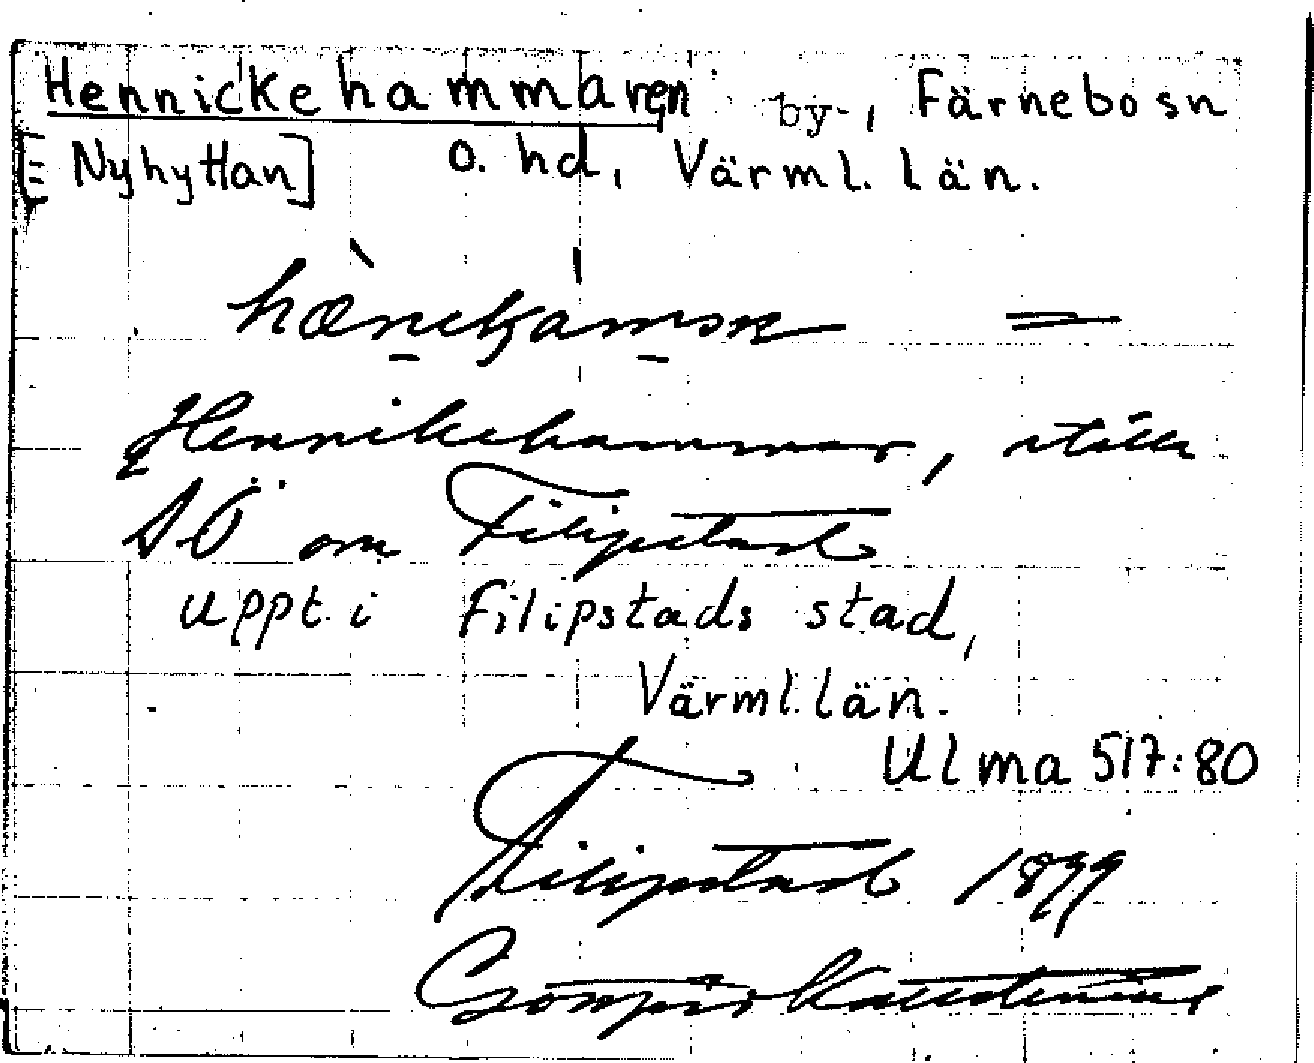 Hennickehammaren by, Färnebo sn
[= Nyhyttan] o. hd, Värml. län.
=
Hennikehammar, ställe
SÖ om Filipstad
uppt. i Filipstads stad,
Värml. län.
Ulma 517:80
Filipstad 1899